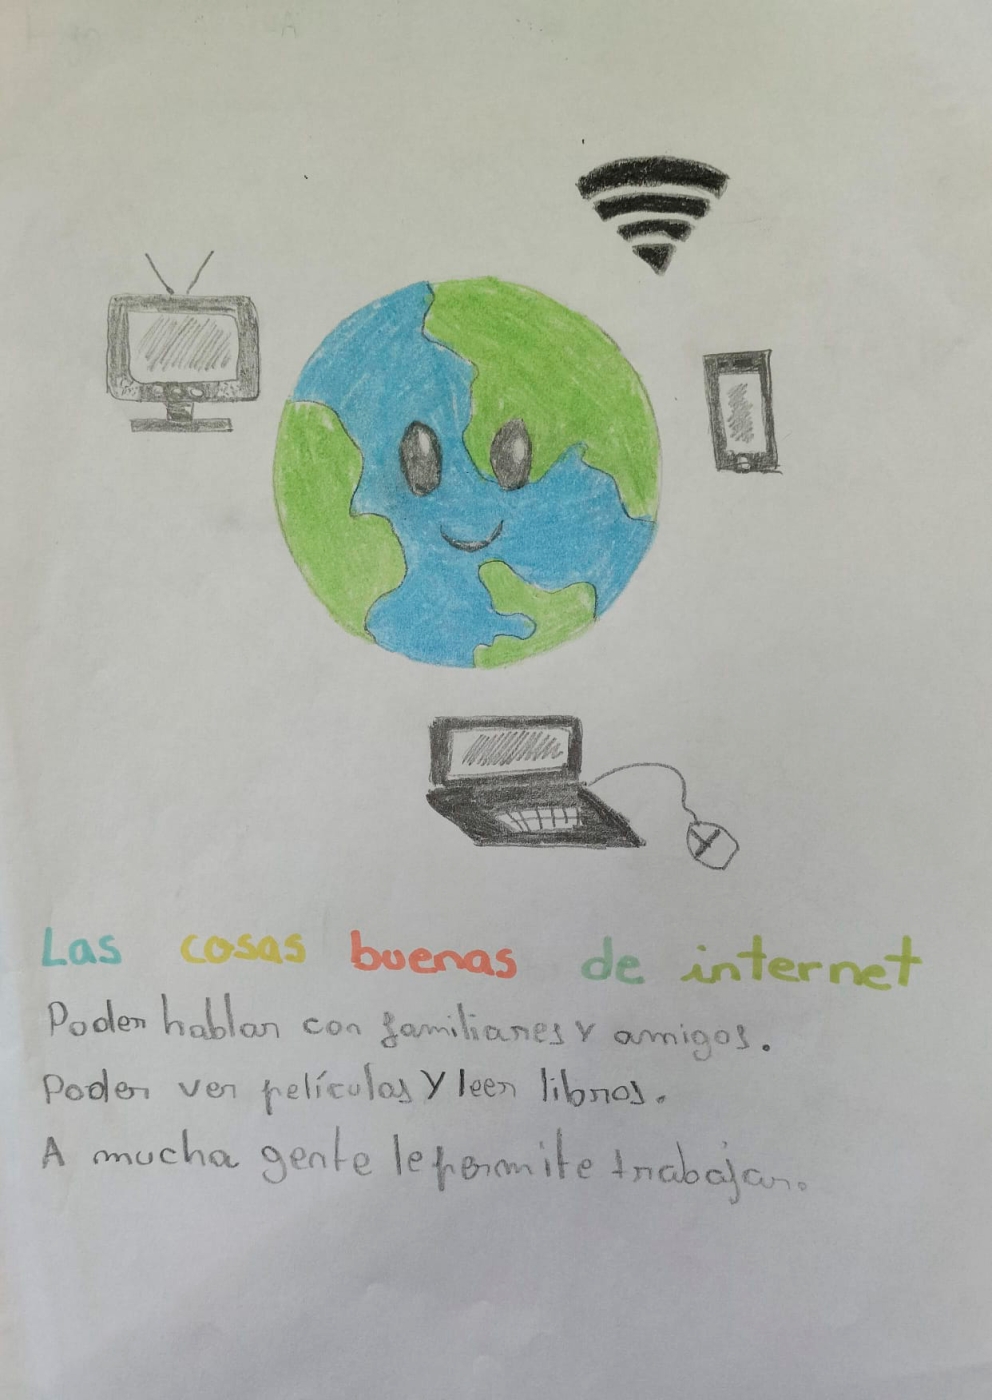 Las cosas buenas de internet
Poder hablar con familiares y amigos.
Poder ver películas y leer libros.
A mucha gente le permite trabajar.